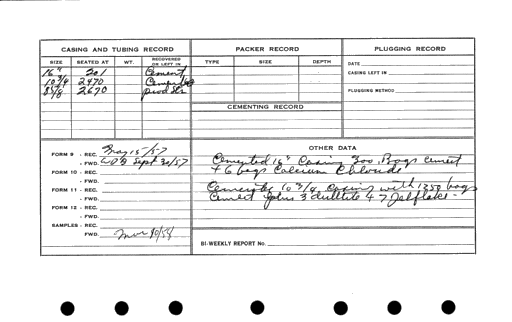 CASING AND TUBING RECORD
SIZE SEATED AT WT. RECOVERED OR LEFT IN
16" 201 Cement
10 3/4 2470 Cement
8 5/8 2670
PACKER RECORD
TYPE SIZE DEPTH
CEMENTING RECORD
PLUGGING RECORD
DATE
CASING LEFT IN
PLUGGING METHOD
FORM 9 - REC. May 15/57
- FWD. Sept 30/57
FORM 10 - REC.
- FWD.
FORM 11 - REC.
- FWD.
FORM 12 - REC.
- FWD.
SAMPLES - REC.
FWD. Mar 10/58
OTHER DATA
Cemented 16" Casing 300 Bags cement
+ 6 bags Calcium Chloride
Cemented 10 3/4 Casing with 1350 bags
Cement plus 3 + 7 Jelflake
BI-WEEKLY REPORT No.